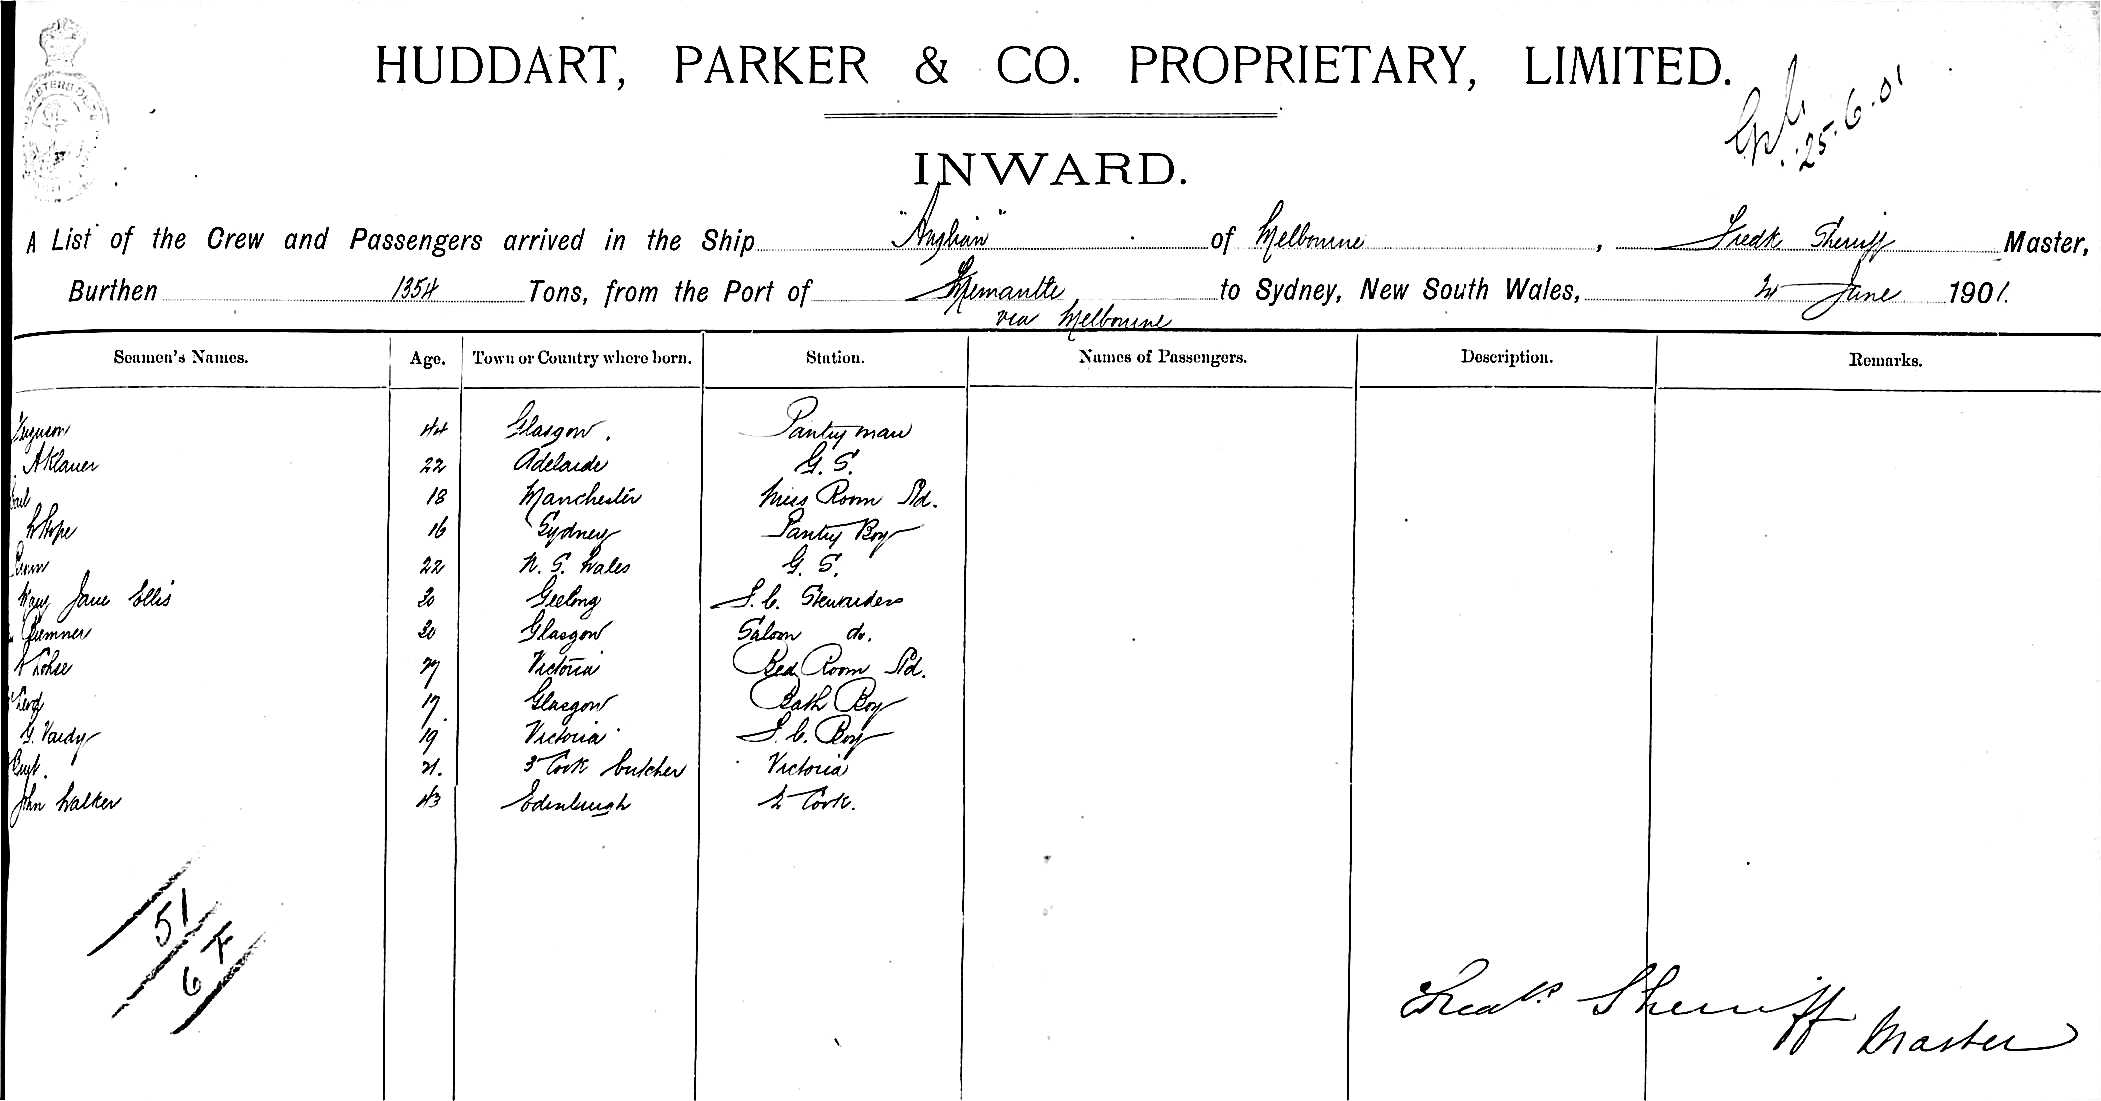 HUDDART, PARKER & CO. PROPRIETARY, LIMITED.
25.6.01
INWARD.
A List of the Crew and Passengers arrived in the Ship "Anglian" of Melbourne, Fredk Sherriff Master,
Burthen 1354 Tons, from the Port of Fremantle to Sydney, New South Wales, June 1901.
via Melbourne
Seamen's Names. Age. Town or Country where born. Station. Names of Passengers. Description. Remarks.
Ferguson 44 Glasgow. Pantry man
22 Adelaide G. S.
18 Manchester Mess Room Std.
Hope 16 Sydney Pantry Boy
22 N. S. Wales G. S.
Mary Jane Ellis 30 Geelong S. C. Stewardess
30 Glasgow Saloon do.
27 Victoria Bed Room Std.
17 Glasgow Bath Boy
G. Vardy 19 Victoria S. C. Boy
21. 3 Cook butcher Victoria
John Walker 43 Edinburgh 2 Cook.
51
6 F
Fredk Sherriff
Master